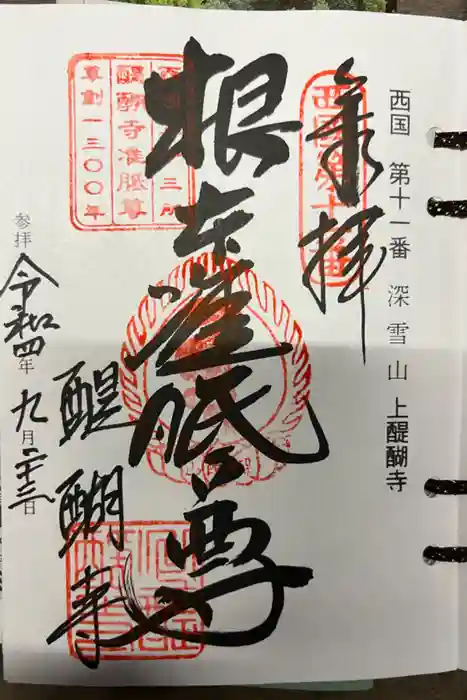 西国 第十一番 深雪山 上醍醐寺
奉拝
西国第十一番
根本准胝尊
醍醐寺
醍醐寺准胝尊
草創一三〇〇年
参拝
令和四年九月二十三日